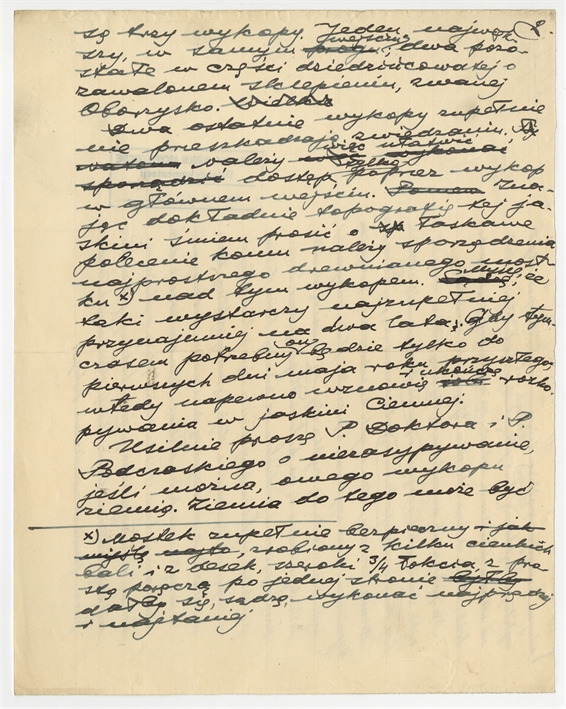 2.
są trzy wykopy. Jeden, najwięk-
szy, w samym progu wejściu, dwa pozo-
stałe w części dziedzińcowatej o
zawalonem sklepieniu, zwanej
Oborzysko.
Dwa ostatnie wykopy zupełnie
nie przeszkadzają zwiedzaniu.
należy więc ułatwić wykonać
tylko dostęp poprzez wykop
w głównem wejściu. Zna-
jąc dokładnie topografię tej ja-
skini śmiem prosić o łaskawe
polecenie komu należy sporządzenia
najprostszego drewnianego most-
ku x) nad tym wykopem. Myślę, że
taki wystarczy najzupełniej
przynajmniej na dwa lata, gdy tym-
czasem potrzebny on będzie tylko do
pierwszych dni maja roku przyszłego,
wtedy napewno wznowię i ukończę rozko-
pywania w jaskini Ciemnej.
Usilnie proszę P. Doktora i P.
Podczaskiego o niezasypywanie,
jeśli można, owego wykopu
ziemią. Ziemia do tego może być
x) Mostek zupełnie bezpieczny i jak
zrobiony z kilku cienkich
bali i z desek, szeroki 3/4 łokcia, z pro-
stą poręczą po jednej stronie
dałby się, sądzę, wykonać najprędzej
i najtaniej